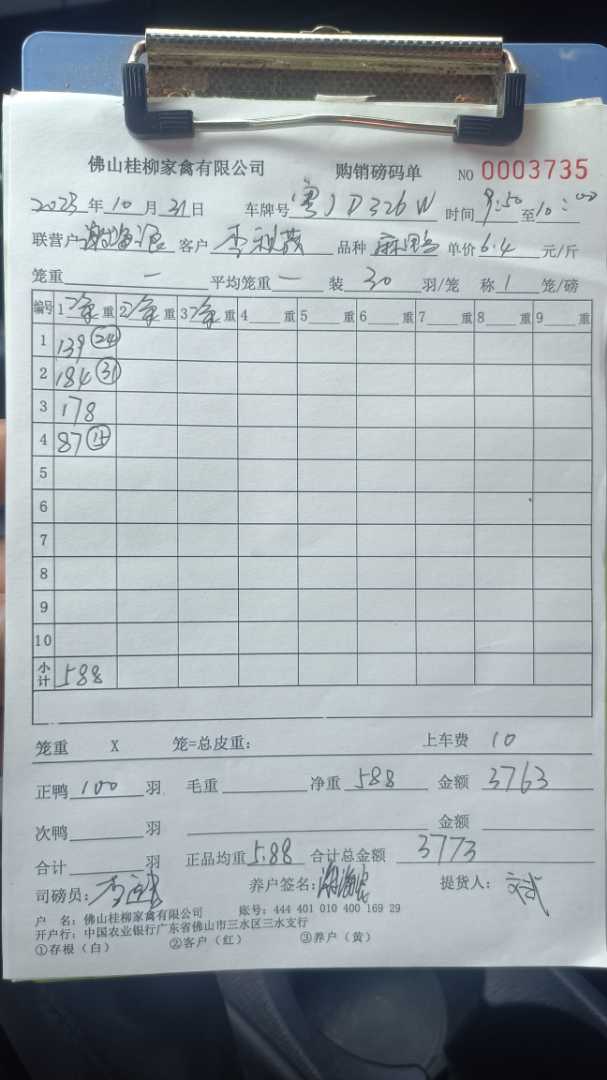 佛山桂柳家禽有限公司 购销磅码单 NO 0003735
2023年10月31日 车牌号 粤JD326W 时间 9:50至10:00
联营户 客户 李 品种 麻鸭 单价 6.4 元/斤
笼重 一 平均笼重 一 装 30 羽/笼 称 1 笼/磅
编号 1 净重 2 净重 3 净重 4 重 5 重 6 重 7 重 8 重 9 重
1 139 (24)
2 184 (31)
3 178
4 87 (15)
5
6
7
8
9
10
小计 588
笼重 X 笼=总皮重: 上车费 10
正鸭 100 羽 毛重 净重 588 金额 3763
次鸭 羽 金额
合计 羽 正品均重 5.88 合计总金额 3773
司磅员: 李 养户签名: 提货人:
户 名: 佛山桂柳家禽有限公司 账号: 444 401 010 400 169 29
开户行: 中国农业银行广东省佛山市三水区三水支行
①存根(白) ②客户(红) ③养户(黄)